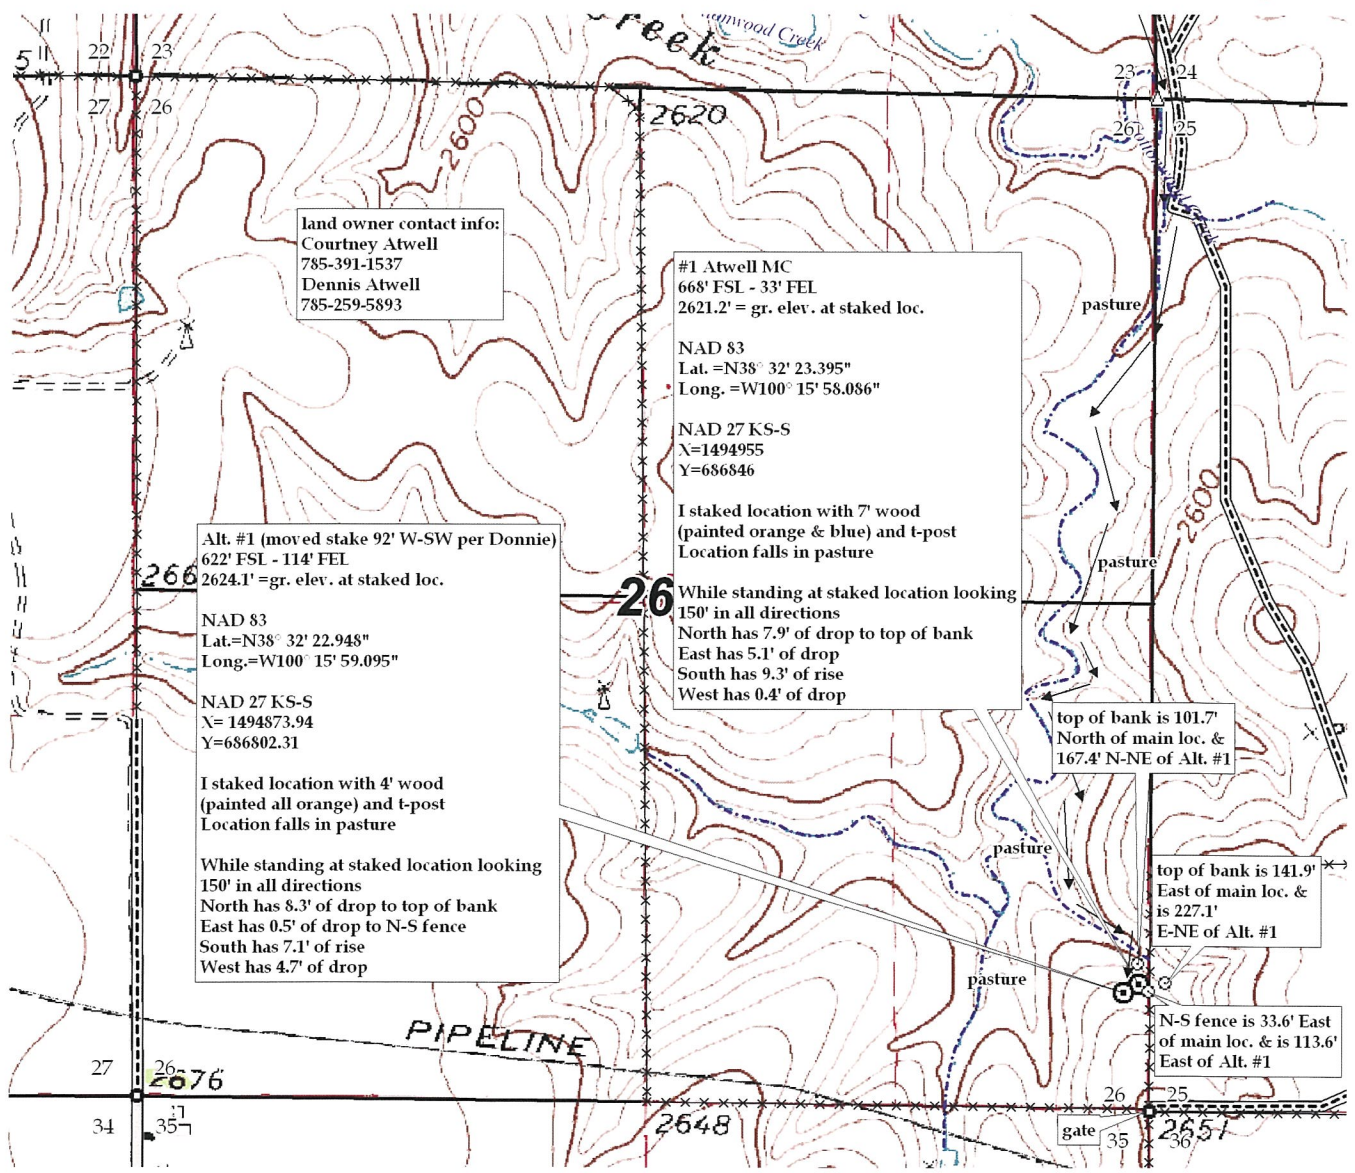 Creek
5
22 23
27 26
2620
2600
23 24
26 25
land owner contact info:
Courtney Atwell
785-391-1537
Dennis Atwell
785-259-5893
#1 Atwell MC
668' FSL - 33' FEL
2621.2' = gr. elev. at staked loc.
NAD 83
Lat. =N38° 32' 23.395"
Long. =W100° 15' 58.086"
NAD 27 KS-S
X=1494955
Y=686846
I staked location with 7' wood
(painted orange & blue) and t-post
Location falls in pasture
While standing at staked location looking
150' in all directions
North has 7.9' of drop to top of bank
East has 5.1' of drop
South has 9.3' of rise
West has 0.4' of drop
pasture
2600
pasture
266
26
Alt. #1 (moved stake 92' W-SW per Donnie)
622' FSL - 114' FEL
2624.1' =gr. elev. at staked loc.
NAD 83
Lat.=N38° 32' 22.948"
Long.=W100° 15' 59.095"
NAD 27 KS-S
X= 1494873.94
Y=686802.31
I staked location with 4' wood
(painted all orange) and t-post
Location falls in pasture
While standing at staked location looking
150' in all directions
North has 8.3' of drop to top of bank
East has 0.5' of drop to N-S fence
South has 7.1' of rise
West has 4.7' of drop
top of bank is 101.7'
North of main loc. &
167.4' N-NE of Alt. #1
pasture
top of bank is 141.9'
East of main loc. &
is 227.1'
E-NE of Alt. #1
pasture
N-S fence is 33.6' East
of main loc. & is 113.6'
East of Alt. #1
PIPELINE
27 26
2676
34 35
2648
26 25
gate
35 36
2651